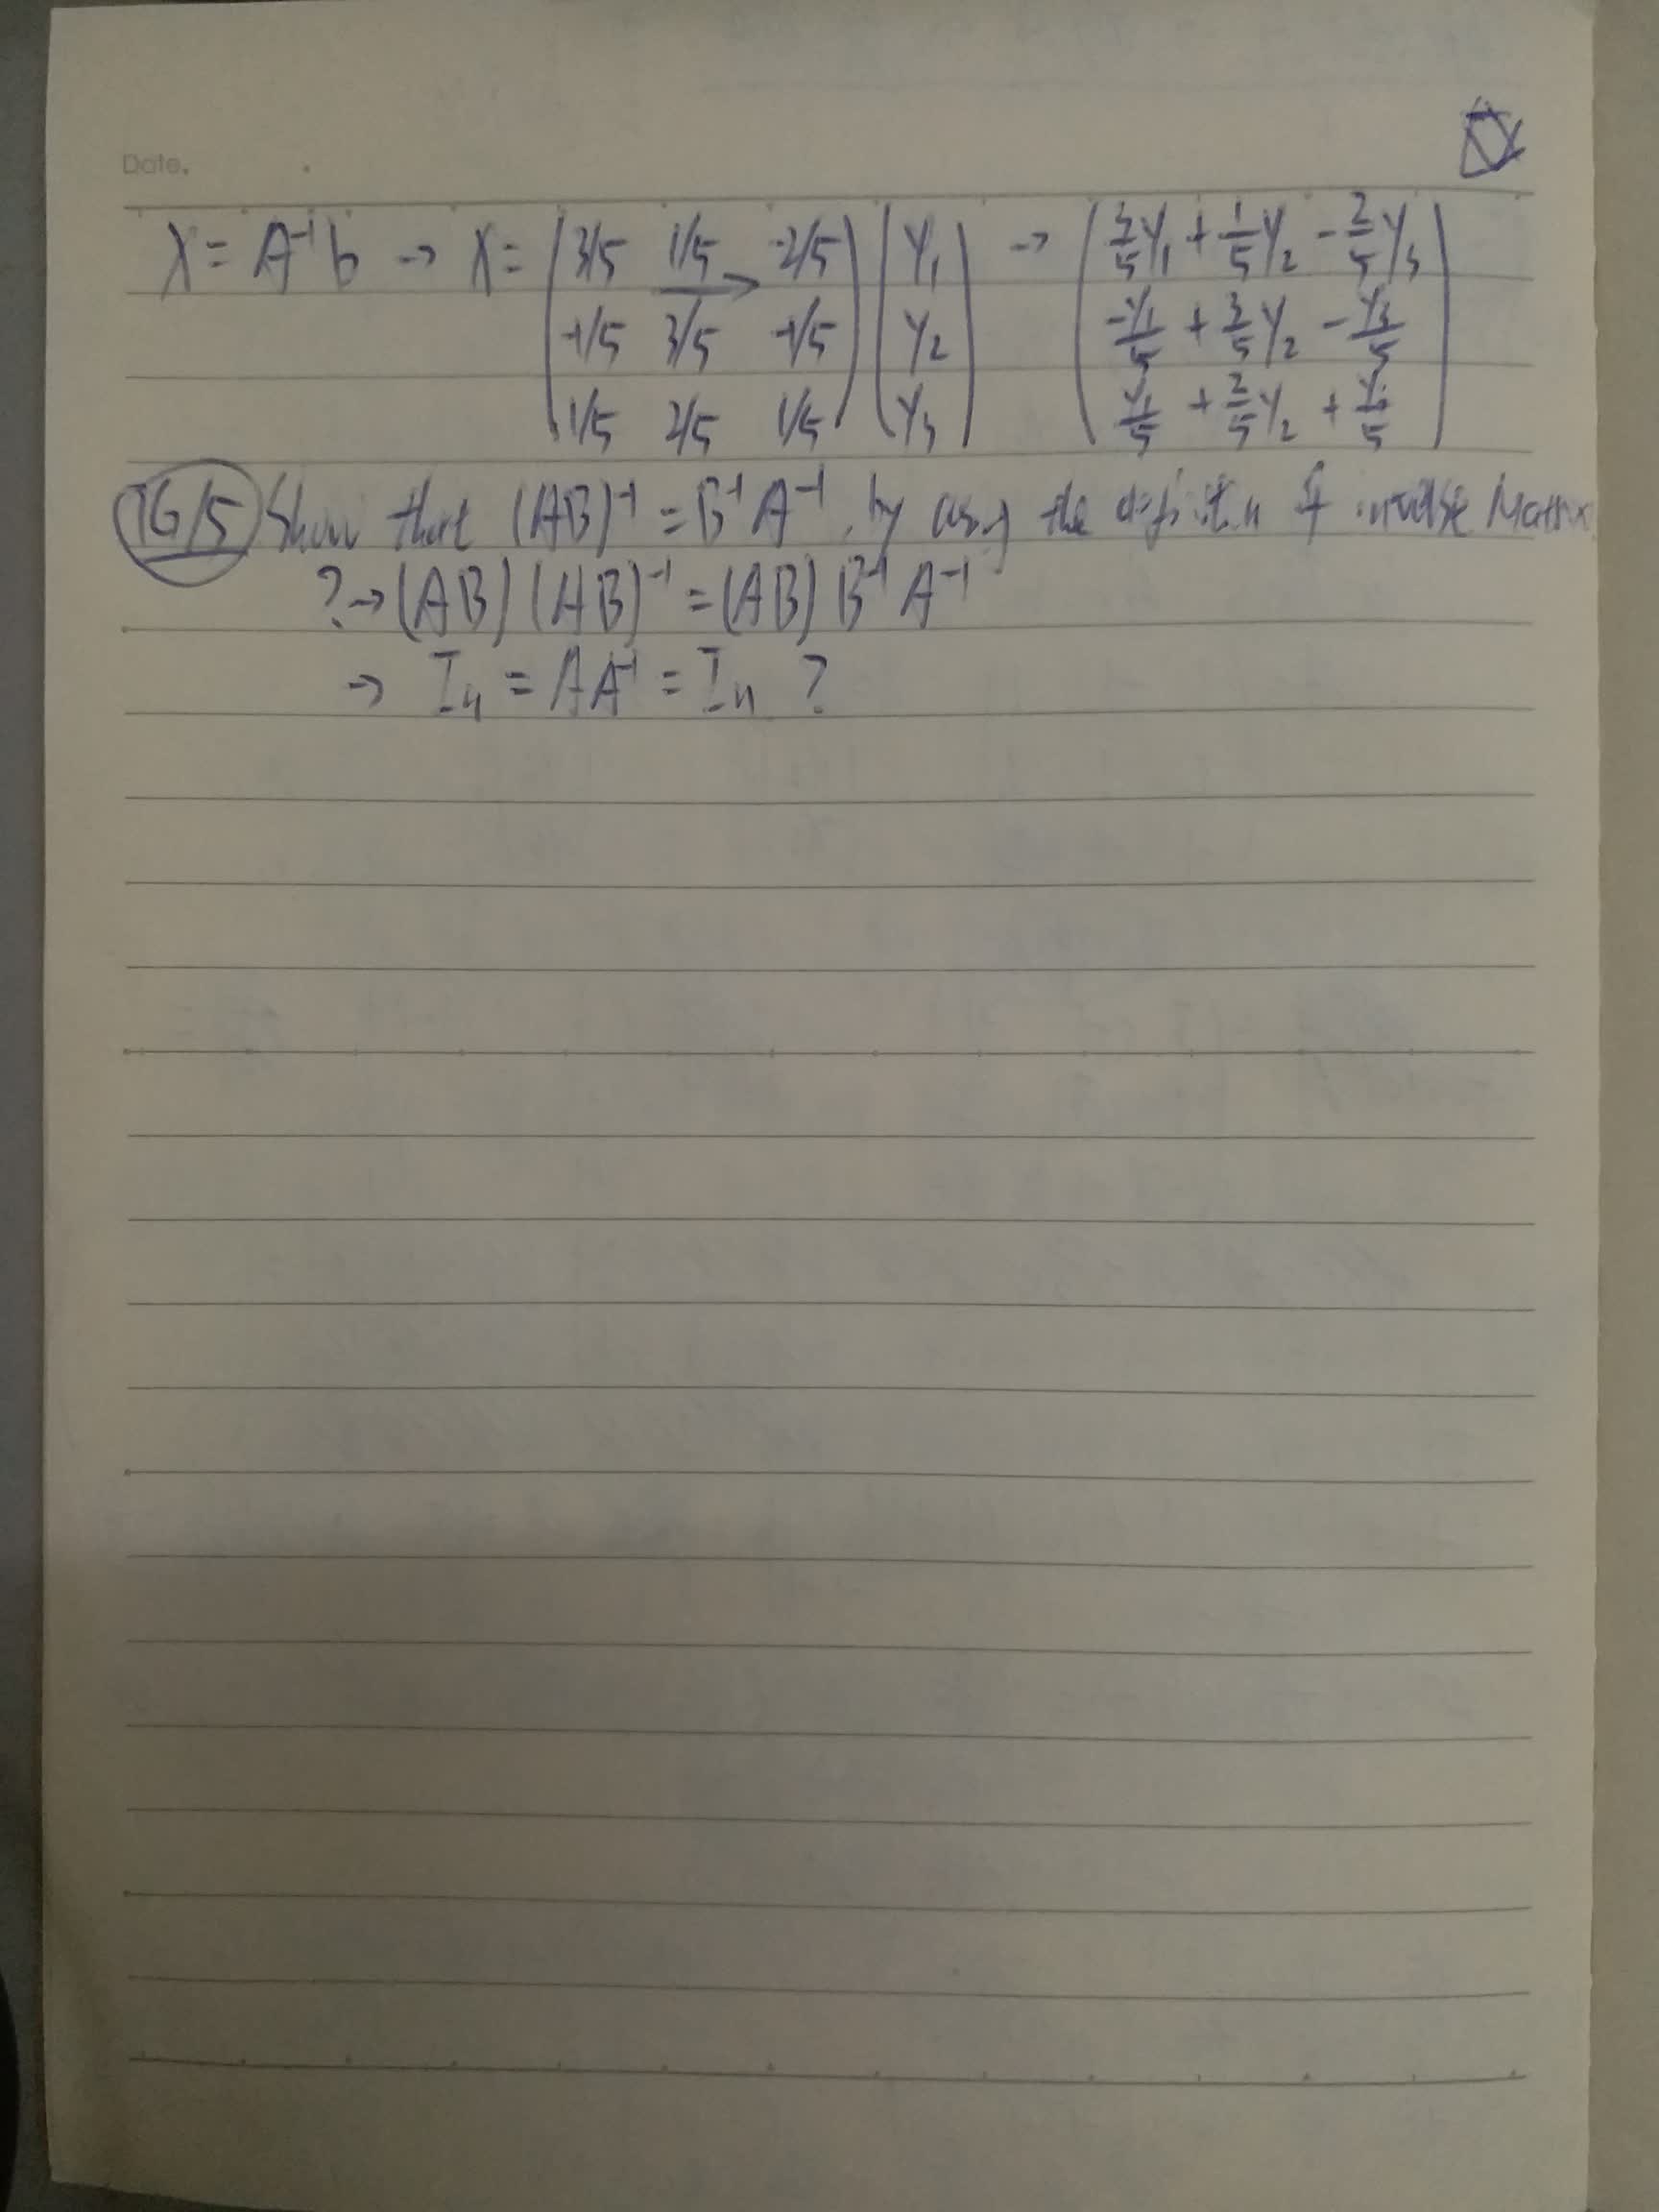 Date.
X = A⁻¹b → X = (3/5 1/5 -2/5) (y₁) → (3/5 y₁ + 1/5 y₂ - 2/5 y₃)
(-1/5 3/5 -1/5) (y₂) (-y₁/5 + 3/5 y₂ - y₃/5)
(1/5 2/5 1/5) (y₃) (y₁/5 + 2/5 y₂ + y₃/5)
TG/5 Show that (AB)⁻¹ = B⁻¹A⁻¹, by using the definition of inverse Matrix
? → (AB)(AB)⁻¹ = (AB)B⁻¹A⁻¹
→ Iₙ = AA⁻¹ = Iₙ ?